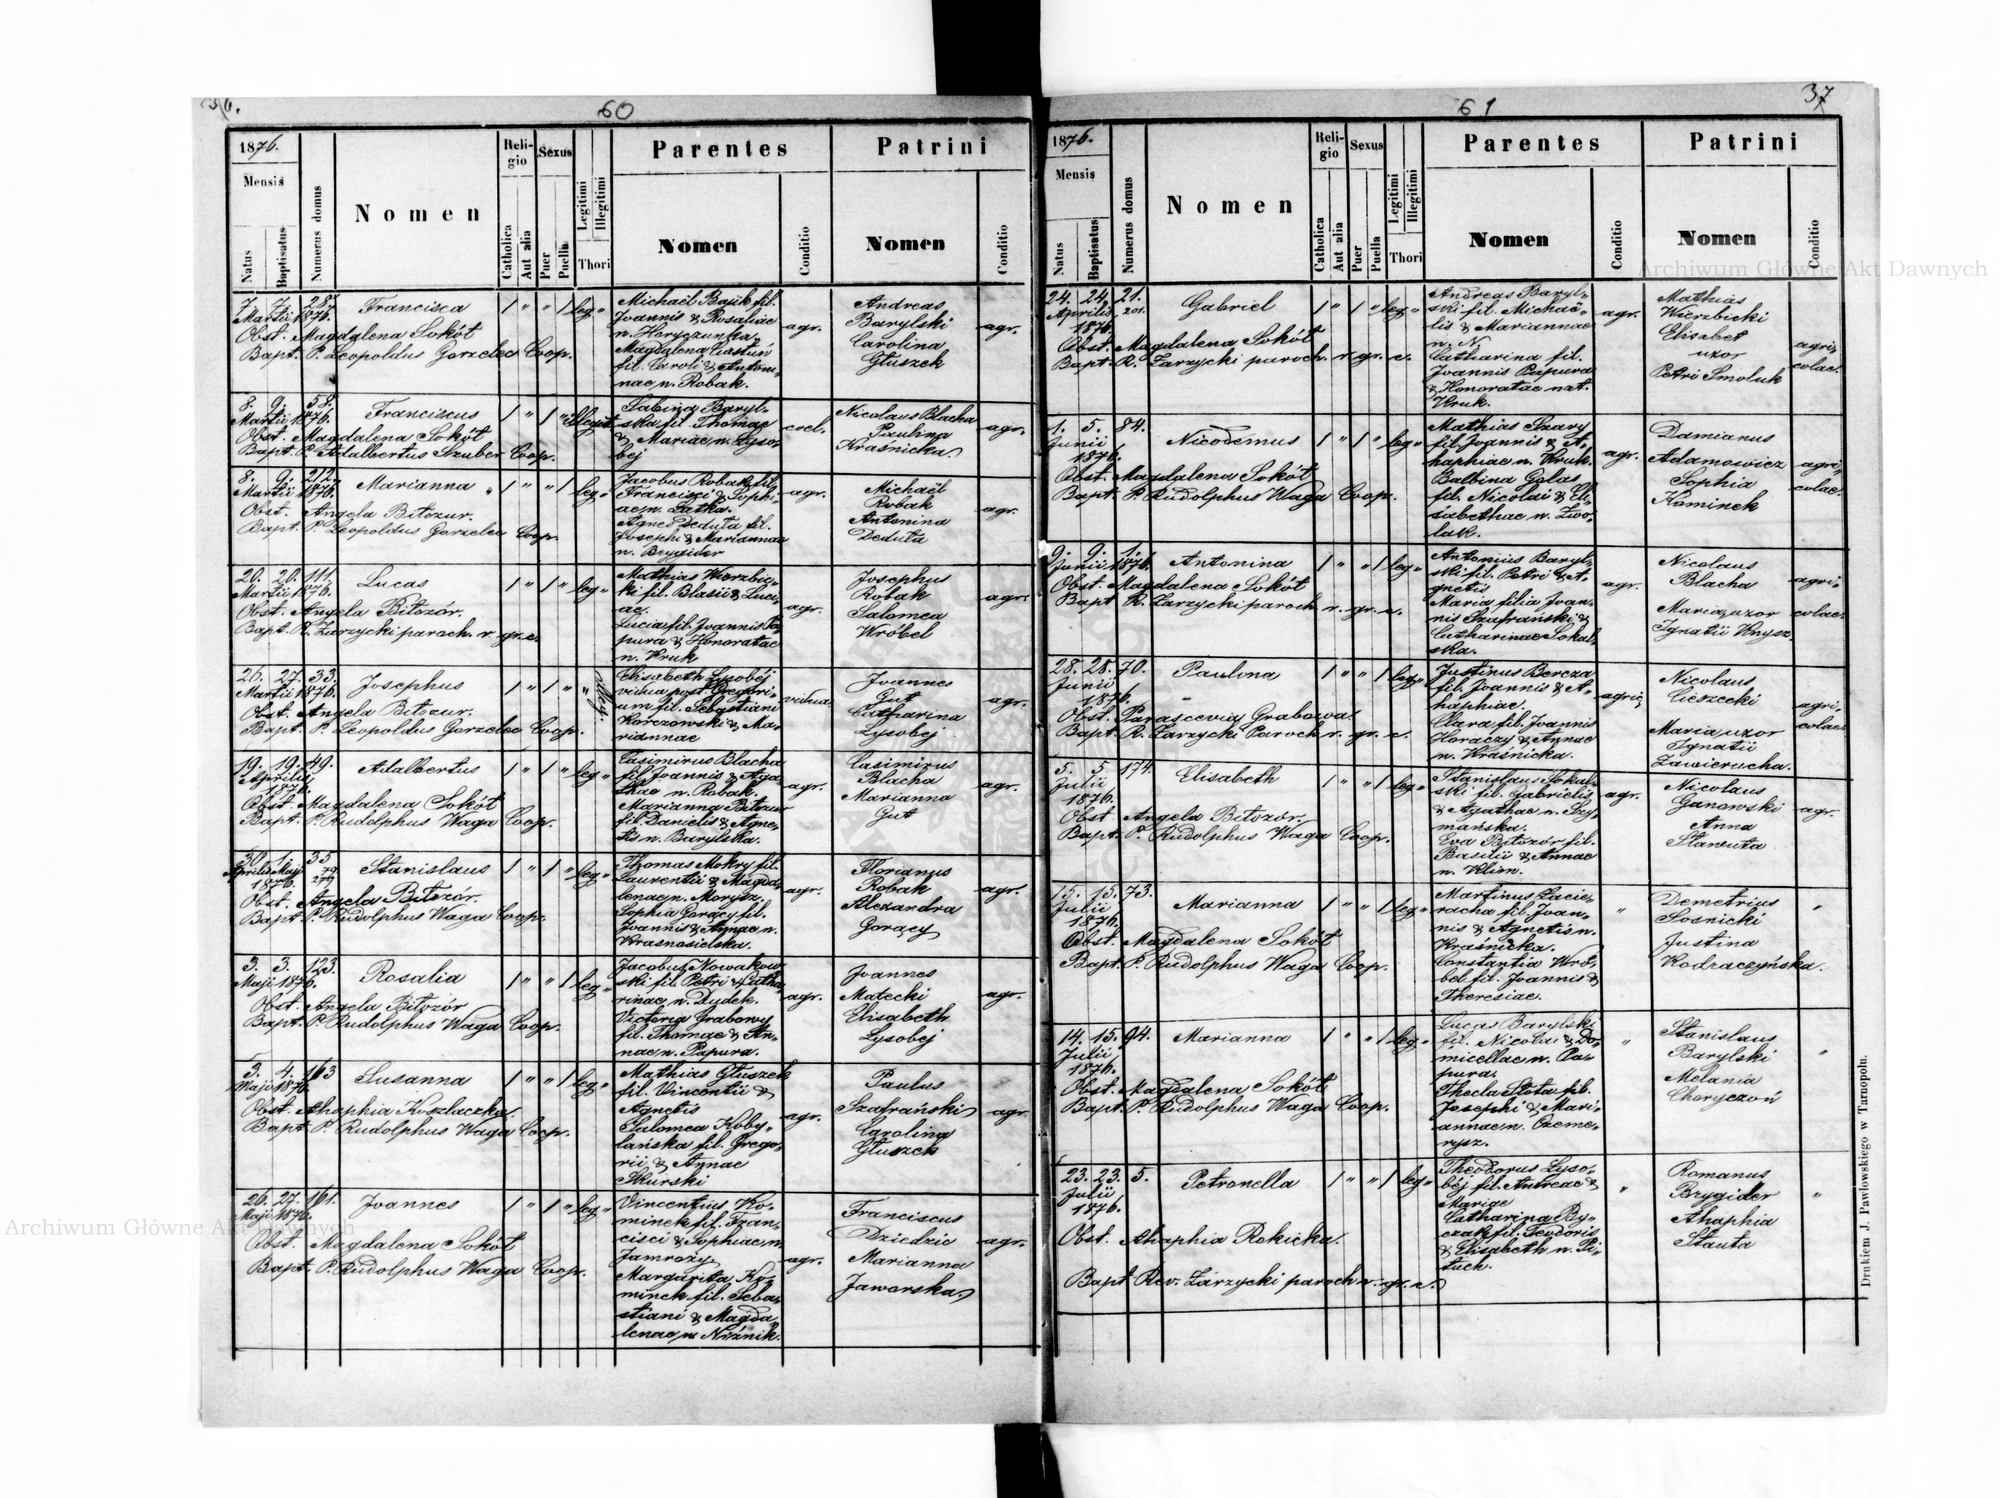 36.
60
1876.
Mensis
Natus
Baptisatus
Numerus domus
Nomen
Religio
Catholica
Aut alia
Sexus
Puer
Puella
Legitimi
Illegitimi
Thori
Parentes
Nomen
Conditio
Patrini
Nomen
Conditio
7. 7. 28.
Martii 1876.
Francisca
leg
Obst. Magdalena Sokół
Bapt. P. Leopoldus Gorzelec Coop.
Michaël Bajik fil.
Joannis & Rosaliae
n. Horyczunka
Magdalena Castuń
fil. Caroli & Antoni-
nae n. Robak.
agr.
Andreas
Barylski
Carolina
Głuszek
agr.
8. 9. 58.
Martii 1876.
Franciscus
illegit
Obst. Magdalena Sokół
Bapt. P. Adalbertus Szuber Coop.
Sabina Baryl-
ska fil. Thomae
& Mariae n. Łyso-
béj
coel.
Nicolaus Blacha
Paulina
Kraśnicka
agr.
8. 9. 212.
Martii 1876.
Marianna
leg
Obst. Angela Bitozur.
Bapt. P. Leopoldus Gorzelec Coop.
Jacobus Robak fil.
Francisci & Sophi-
ae n. Łatka.
Agnes Deduta fil.
Josephi & Mariannae
n. Brygider
agr.
Michaël
Robak
Antonina
Deduta
agr.
20. 20. 111.
Martii 1876.
Lucas
leg
Obst. Angela Bitozór.
Bapt. R. Zarzycki paroch. r. gr. c.
Mathias Wierzbic-
ki fil. Blasii & Luci-
ae.
Lucia fil. Joannis Pa-
pura & Honoratae
n. Kruk
agr.
Josephus
Robak
Salomea
Wróbel
agr.
26. 27. 33.
Martii 1876.
Josephus
illeg.
Obst. Angela Bitozur.
Bapt. P. Leopoldus Gorzelec Coop.
Elisabeth Łysobéj
vidua post Gregori-
um fil. Sebastiani
Korczowski & Ma-
riannae
vidua.
Joannes
Gut
Catharina
Łysobej
agr.
19. 19. 49.
Aprilis
1876.
Adalbertus
leg
Obst. Magdalena Sokół
Bapt. P. Rudolphus Waga Coop.
Casimirus Blacha
fil. Joannis & Aga-
thae n. Robak.
Marianna Bitozur
fil. Danielis & Agne-
tis n. Barylska.
agr.
Casimirus
Blacha
Marianna
Gut
agr.
30. 1. 35
Aprilis Maji
1876.
Stanislaus
leg
Obst. Angela Bitozór.
Bapt. P. Rudolphus Waga Coop.
Thomas Mokry fil.
Laurentii & Magda-
lenae n. Morysz.
Sophia Goracy fil.
Joannis & Annae n.
Krasnosielska.
agr.
Florianus
Robak
Alexandra
Goracy
agr.
3. 3. 123.
Maji 1876.
Rosalia
leg
Obst. Angela Bitozór
Bapt. P. Rudolphus Waga Coop.
Jacobus Nowakow-
ski fil. Petri & Catha-
rinae n. Dudek.
Victoria Grabowy
fil. Thomae & An-
nae n. Papura.
agr.
Joannes
Matecki
Elisabeth
Łysobéj
agr.
3. 4. 163
Maji 1876
Susanna
leg
Obst. Ahaphia Koszlaczka.
Bapt. P. Rudolphus Waga Coop.
Mathias Głuszek
fil. Vincentii &
Agnetis
Salomea Koby-
lańska fil. Grego-
rii & Annae
Skurski
agr.
Paulus
Szafrański
Carolina
Głuszek
agr.
26. 27. 161.
Maji 1876.
Joannes
leg
Obst. Magdalena Sokół
Bapt. P. Rudolphus Waga Coop.
Vincentius Ko-
minek fil. Fran-
cisci & Sophiae n.
Jamroży
Margarita Ko-
minek fil. Seba-
stiani & Magda-
lenae n. Niżnik.
agr.
Franciscus
Dziedzic
Marianna
Jaworska
agr.
61
37
1876.
Mensis
Natus
Baptisatus
Numerus domus
Nomen
Religio
Catholica
Aut alia
Sexus
Puer
Puella
Legitimi
Illegitimi
Thori
Parentes
Nomen
Conditio
Patrini
Nomen
Conditio
24. 24. 21.
Aprilis 201.
1876.
Gabriel
leg
Obst. Magdalena Sokół
Bapt. R. Zarzycki paroch. r. gr. c.
Andreas Baryl-
ski fil. Michaë-
lis & Mariannae
n. N.
Catharina fil.
Joannis Papura
& Honoratae nat.
Kruk.
agr.
Mathias
Wierzbicki
Elisabet
uxor
Petri Smoluk
agri-
colae.
1. 5. 84.
Junii
1876.
Nicodemus
leg
Obst. Magdalena Sokół
Bapt. P. Rudolphus Waga Coop.
Mathias Szary
fil. Joannis & A-
haphiae n. Kruk.
Balbina Golas
fil. Nicolai & Eli-
sabethae n. Zwo-
lak.
agr.
Damianus
Adamowicz
Sophia
Kominek
agri-
colae.
9. 9. 1.
Junii 1876.
Antonina
leg
Obst. Magdalena Sokół
Bapt R. Zarzycki paroch r. gr. c.
Antonius Baryl-
ski fil. Petri & A-
gnetis
Maria filia Joan-
nis Szafrański &
Catharinae Sokal-
ska.
agr.
Nicolaus
Blacha
Maria uxor
Ignatii Knysz.
agri-
colae.
28. 28. 70.
Junii
1876.
Paulina
leg
Obst. Parascevia Grabowa.
Bapt. R. Zarzycki Paroch r. gr. c.
Justinus Bercza
fil. Joannis & A-
haphiae.
Clara fil. Joannis
Horaczy & Annae
n. Kraśnicka.
agric.
Nicolaus
Cieszecki
Maria uxor
Ignatii
Zawierucha.
agri-
colae
5. 5. 174.
Julii
1876.
Elisabeth
leg
Obst Angela Bitozór.
Bapt. P. Rudolphus Waga Coop.
Stanislaus Sokal-
ski fil. Gabrielis
& Agathae n. Szy-
mańska.
Eva Bitozór fil.
Basilii & Annae
n. Klim.
agr.
Nicolaus
Ganowski
Anna
Sławuta
agr.
15. 15. 73.
Julii
1876.
Marianna
leg
Obst. Magdalena Sokół
Bapt. P. Rudolphus Waga Coop.
Martinus Zacie-
racha fil. Joan-
nis & Agnetis n.
Kraśnicka.
Constantia Wró-
bel fil. Joannis &
Theresiae.
"
Demetrius
Sosnicki
Justina
Kodraczyńska.
"
14. 15. 94.
Julii
1876.
Marianna
leg
Obst. Magdalena Sokół
Bapt. P. Rudolphus Waga Coop.
Lucas Barylski
fil. Nicolai & Do-
micellae n. Pa-
pura.
Thecla Słota fil.
Josephi & Mari-
annae n. Czeme-
rysz.
"
Stanislaus
Barylski
Melania
Choryczoń
"
23. 23. 5.
Julii
1876.
Petronella
leg
Obst. Ahaphia Rekicka.
Bapt. Rev. Zarzycki paroch r. gr. c.
Theodorus Łyso-
béj fil. Andreae &
Mariae
Catharina By-
czak fil. Teodoris
& Elisabeth n. Pi-
tuch.
"
Romanus
Brygider
Ahaphia
Stauta
"
Drukiem J. Pawłowskiego w Tarnopolu.
Archiwum Główne Akt Dawnych
Archiwum Główne Akt Dawnych